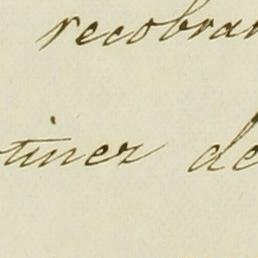 recobrar
tinez de